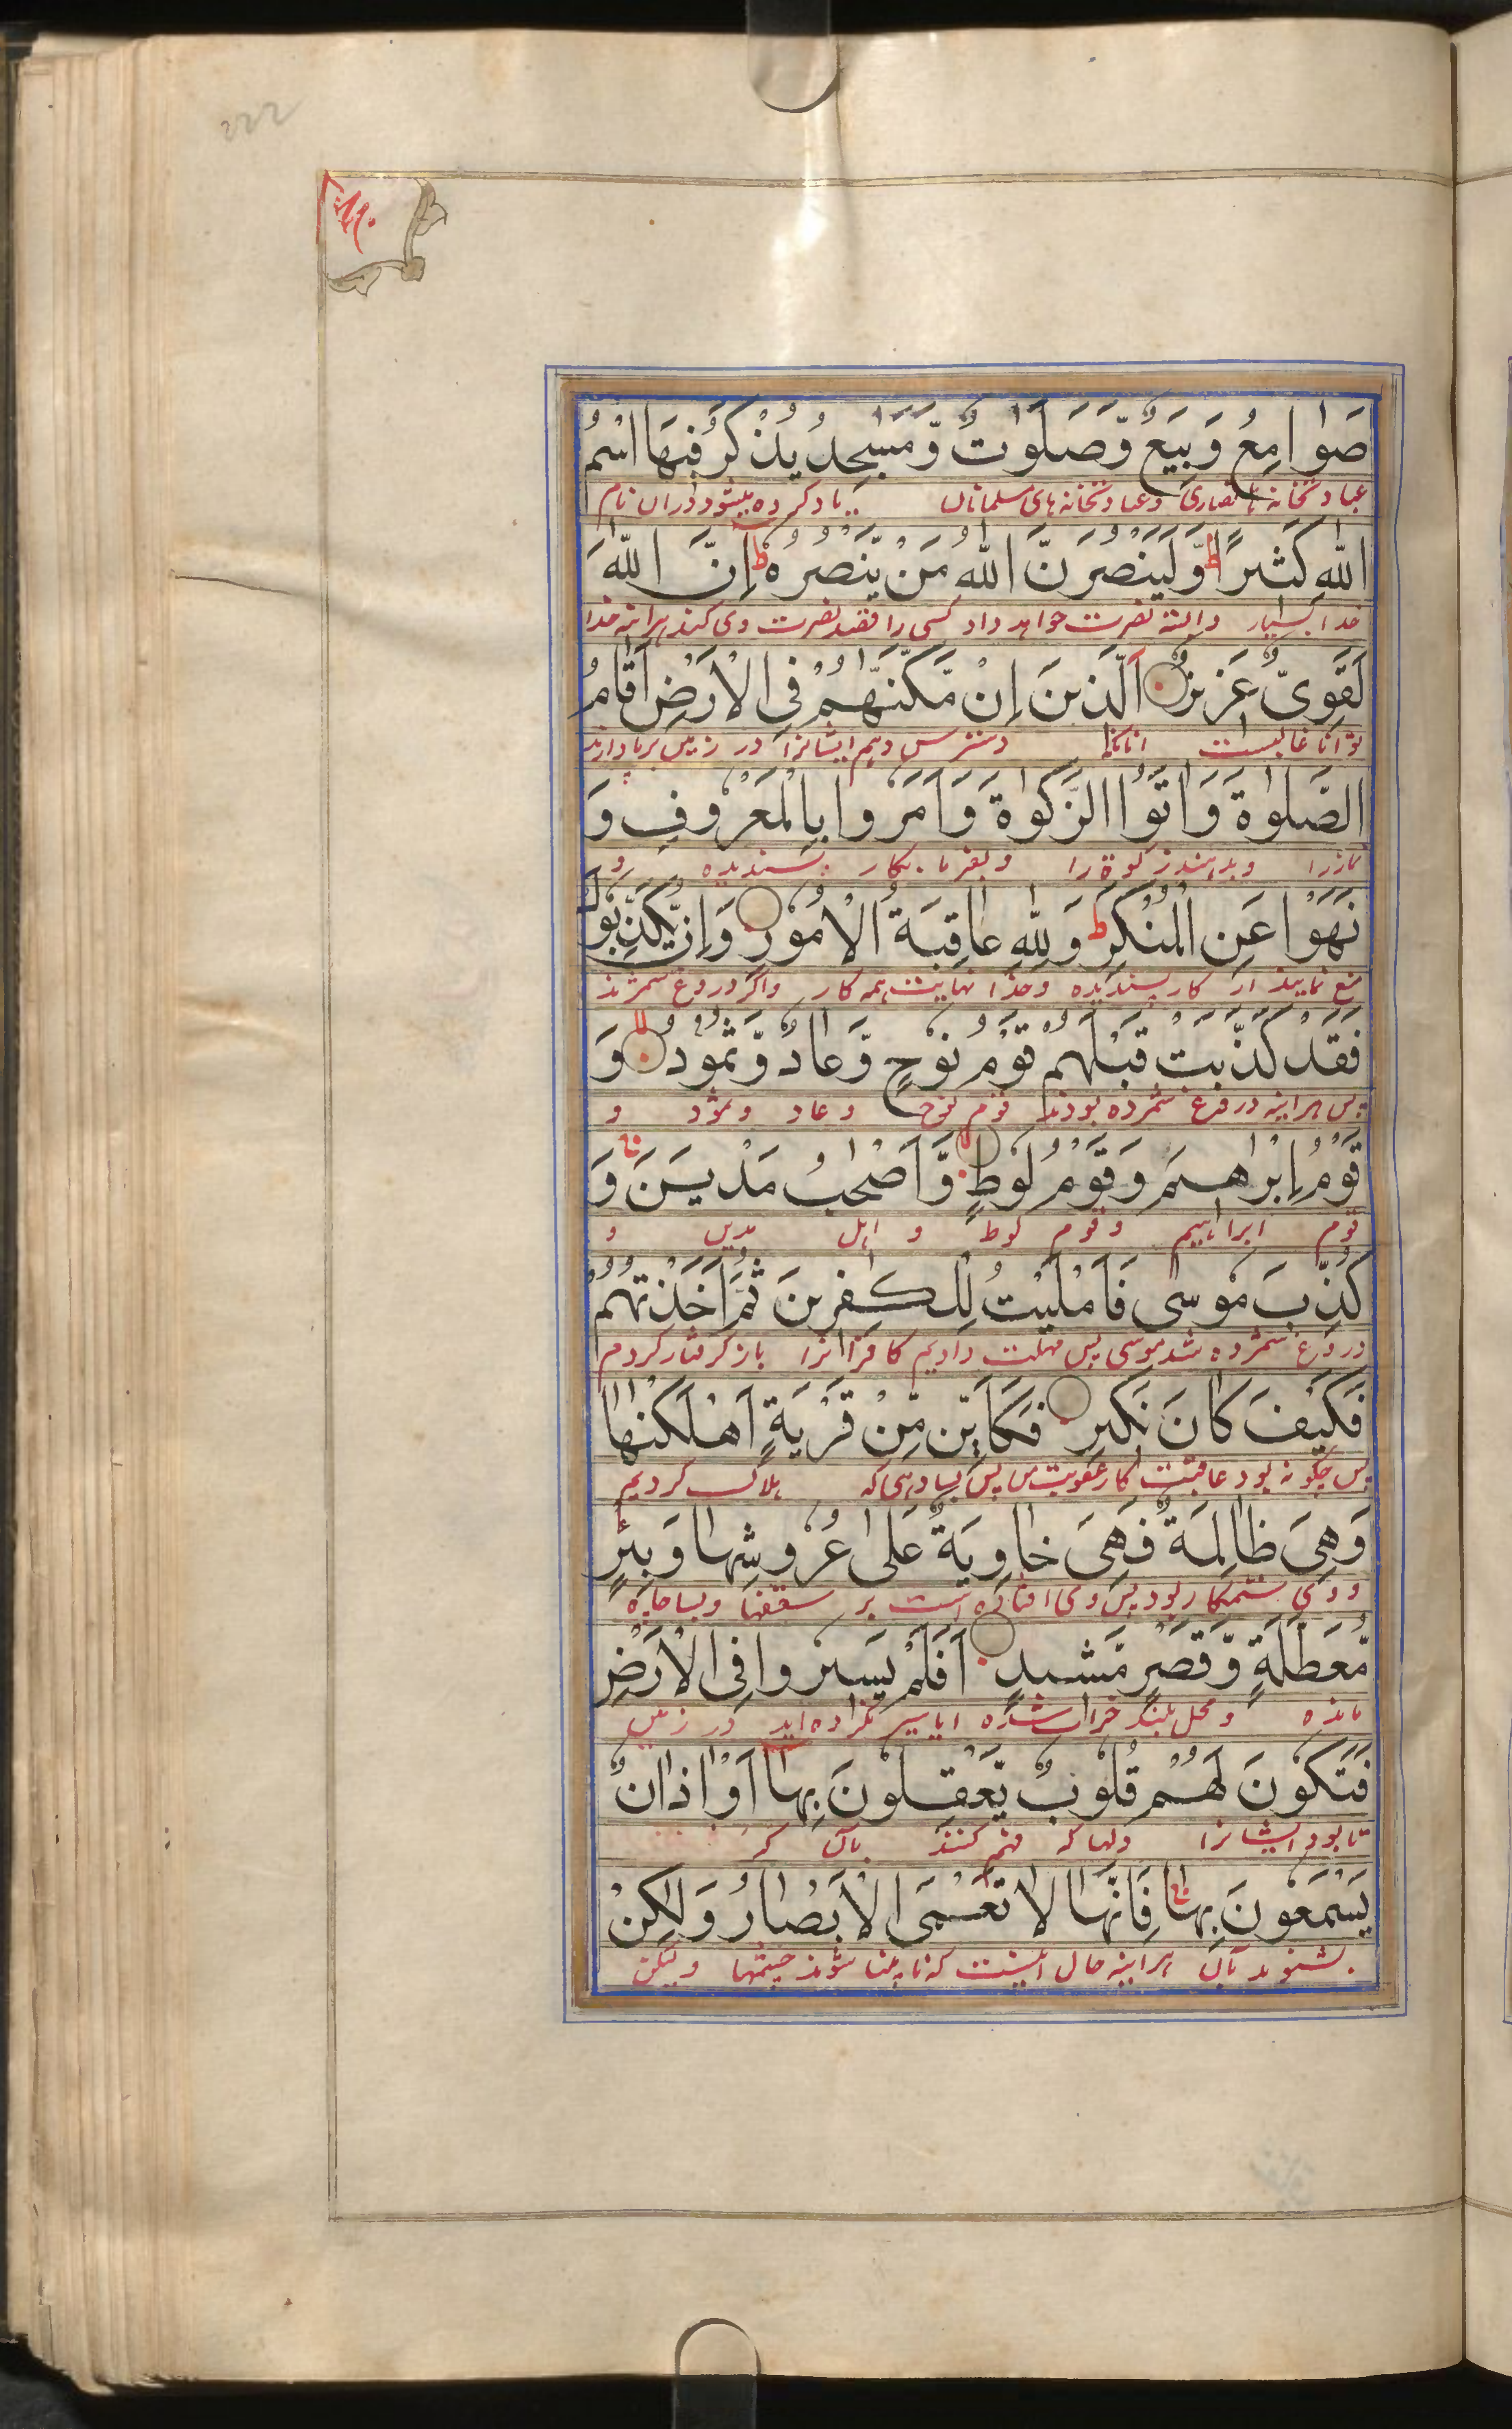 صَوَامِعُ وَبِيَعٌ وَّصَلَوٰتٌ وَّمَسٰجِدُ يُذْكَرُ فِيْهَا اسْمُ
عبادتخانه ها نصاری وعبادتخانه های مسلمانان یاد کرده میشود دران نام
اللّٰهِ كَثِيْرًا ط وَّلَيَنْصُرَنَّ اللّٰهُ مَنْ يَّنْصُرُهٗ ط اِنَّ اللّٰهَ
خدا بسیار والبته نصرت خواهد داد کسی را قصد نصرت وی کند هرائنه خدا
لَقَوِىٌّ عَزِيْزٌ اَلَّذِيْنَ اِنْ مَّكَّنّٰهُمْ فِى الْاَرْضِ اَقَامُ
توانا غالبست آنانکه دسترس دهیم ایشانرا در زمین برپا دارند
الصَّلٰوةَ وَاٰتَوُا الزَّكٰوةَ وَاَمَرُوْا بِالْمَعْرُوْفِ وَ
نمازرا وبدهند زکوة را وبفرمایند بکار پسندیده و
نَهَوْا عَنِ الْمُنْكَرِ ط وَلِلّٰهِ عَاقِبَةُ الْاُمُوْرِ وَاِنْ يُّكَذِّبُوْكَ
منع نمایند از کار پسندیده وخدا نهایت همه کار واگر دروغ شمرند
فَقَدْ كَذَّبَتْ قَبْلَهُمْ قَوْمُ نُوْحٍ وَّعَادٌ وَّثَمُوْدُ لا وَ
پس هراینه دروغ شمرده بودند قوم نوح و عاد وثمود و
قَوْمُ اِبْرٰهِيْمَ وَقَوْمُ لُوْطٍ لا وَّاَصْحٰبُ مَدْيَنَ وَ
قوم ابراهیم وقوم لوط و اهل مدین و
كُذِّبَ مُوْسٰى فَاَمْلَيْتُ لِلْكٰفِرِيْنَ ثُمَّ اَخَذْتُهُمْ
دروغ شمرده شد موسی پس مهلت دادیم کافرانرا باز گرفتار کردم
فَكَيْفَ كَانَ نَكِيْرِ فَكَاَيِّنْ مِّنْ قَرْيَةٍ اَهْلَكْنٰهَا
پس چگونه بود عاقبت کار عقوبت من پس بسا دهی که هلاک کردیم
وَهِىَ ظَالِمَةٌ فَهِىَ خَاوِيَةٌ عَلٰى عُرُوْشِهَا وَبِئْرٍ
ووی ستمکار بود پس وی افتاده است بر سقفها وبسا چاه
مُّعَطَّلَةٍ وَّقَصْرٍ مَّشِيْدٍ اَفَلَمْ يَسِيْرُوْا فِى الْاَرْضِ
مانده ومحل بلند خراب شده ایا سیر نکرده اند در زمین
فَتَكُوْنَ لَهُمْ قُلُوْبٌ يَّعْقِلُوْنَ بِهَا اَوْ اٰذَانٌ
تا بود ایشانرا دلها که فهم کنند بآن که
يَسْمَعُوْنَ بِهَا فَاِنَّهَا لَا تَعْمَى الْاَبْصَارُ وَلٰكِنْ
بشنوند بآن هراینه حال اینست که نابینا شوند چشمها ولیکن